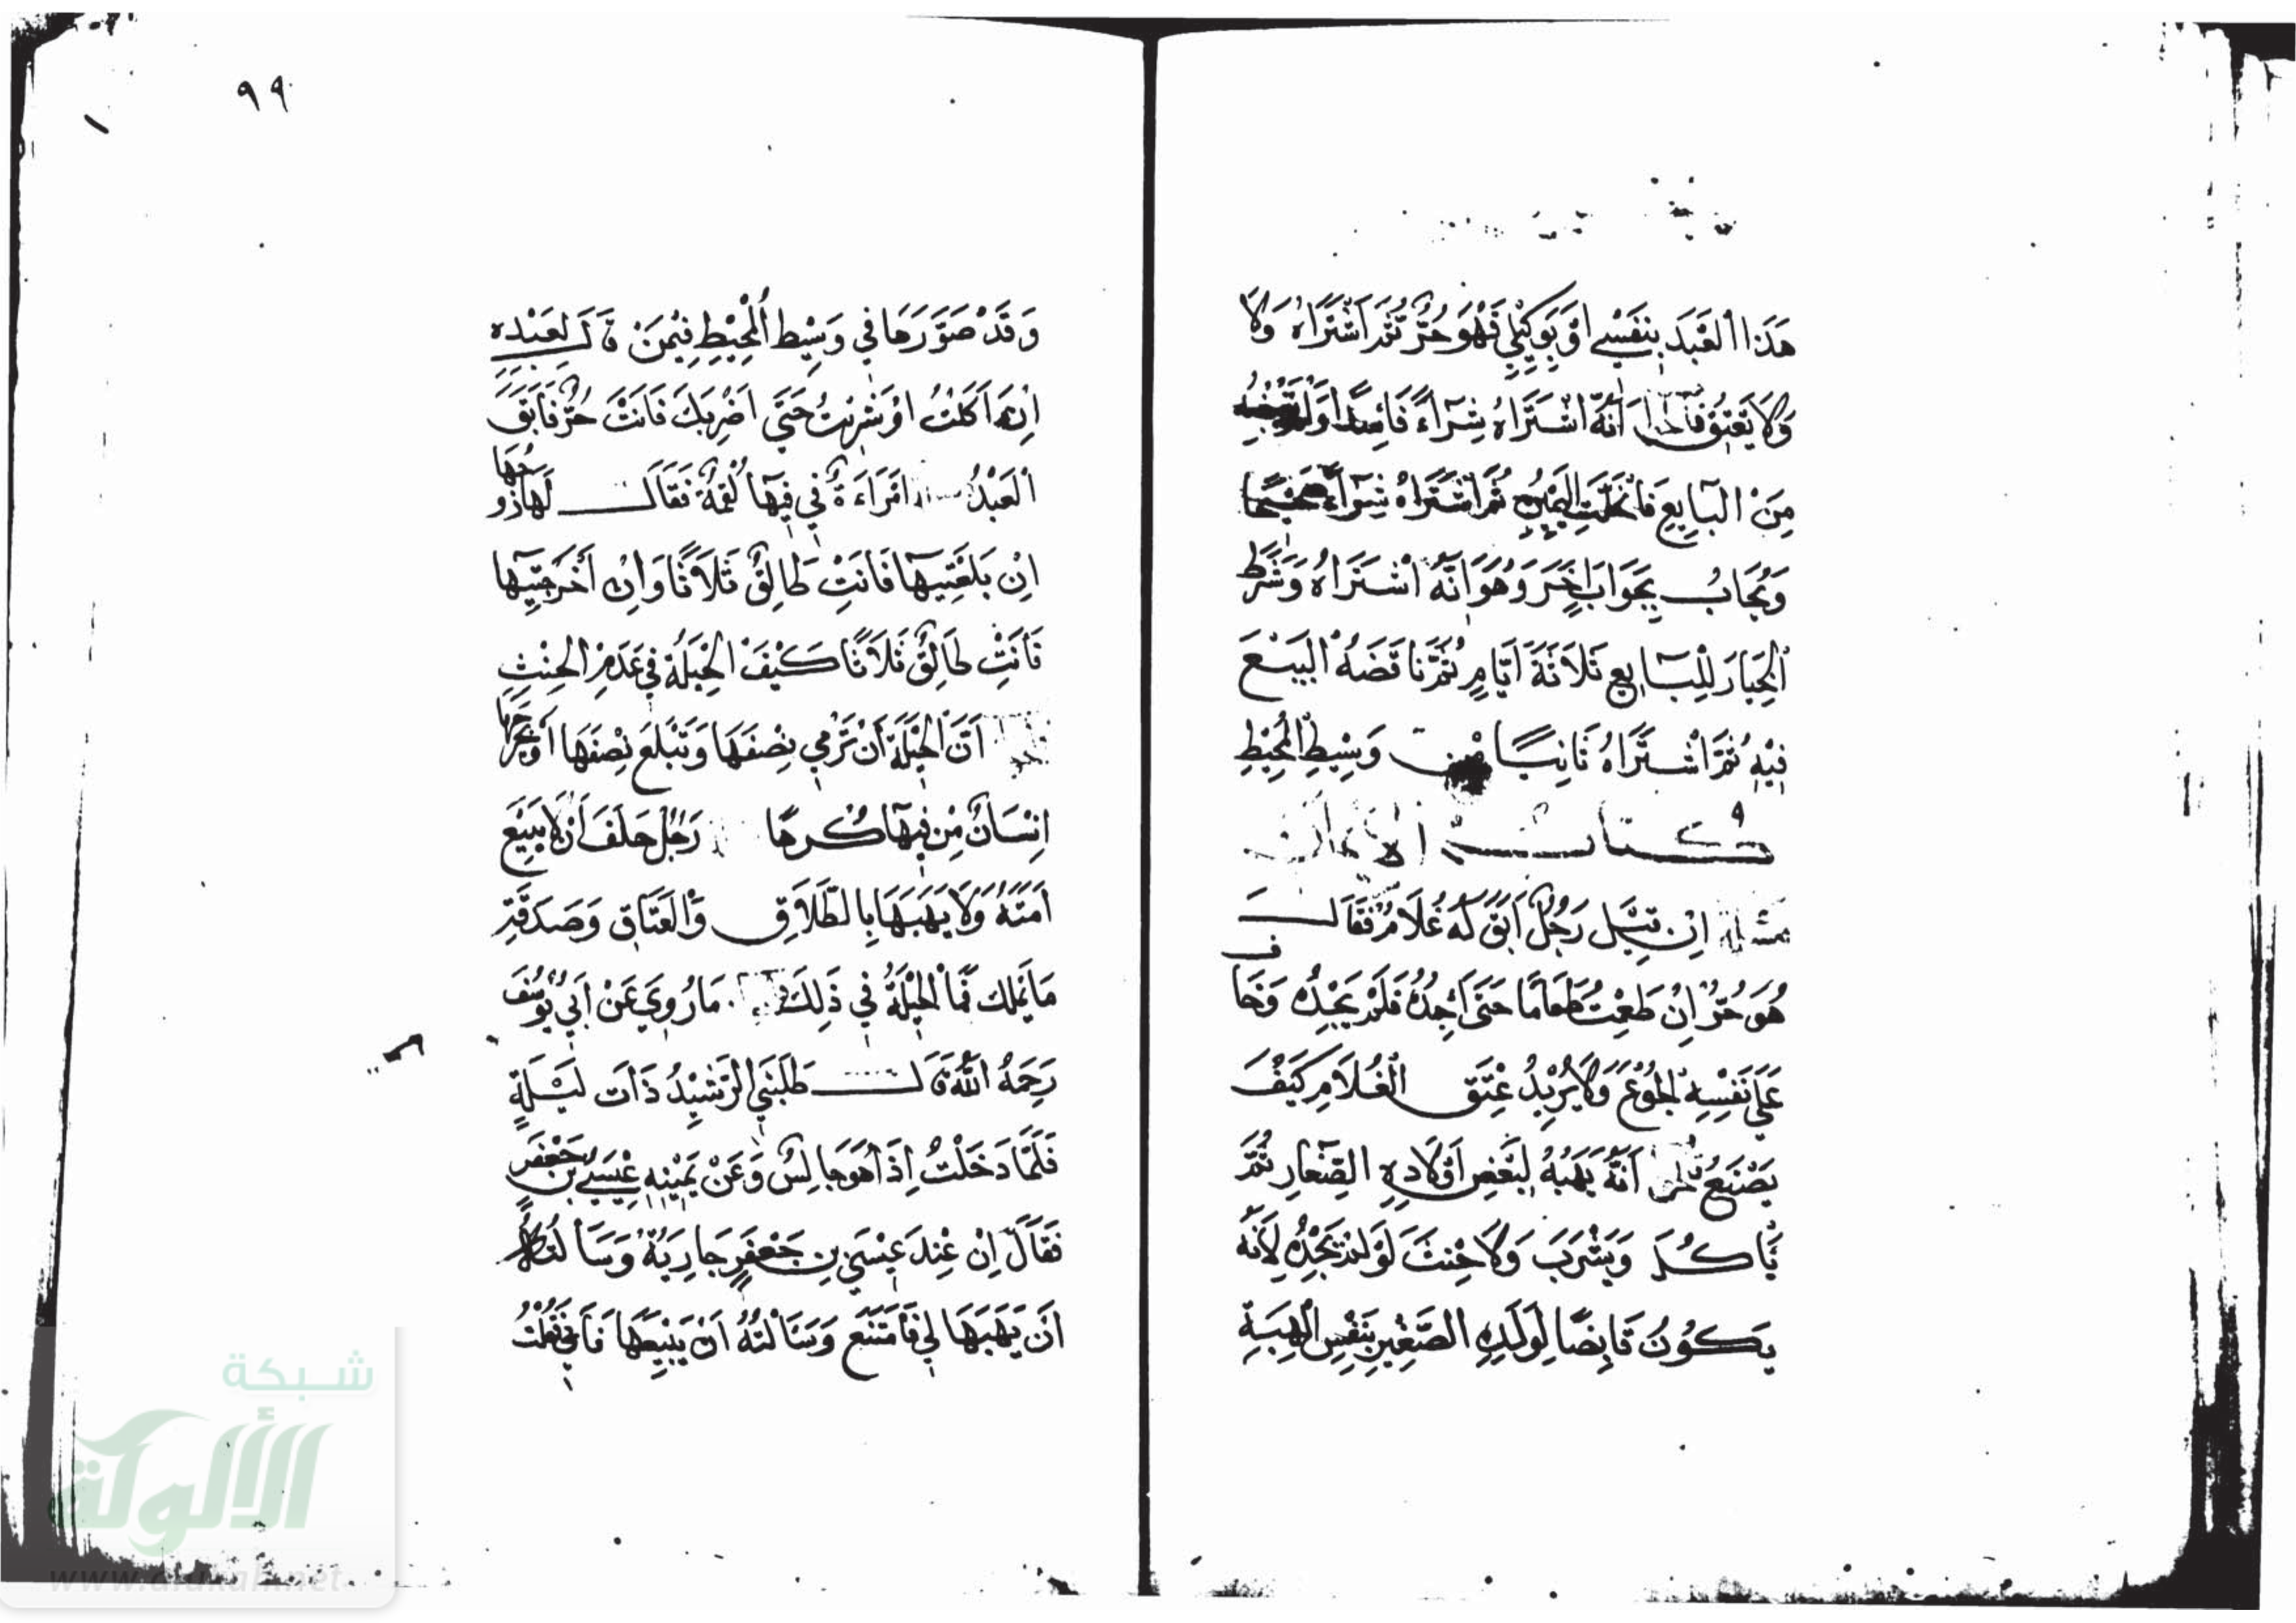 هَذَا الْعَبْدَ بِنَفْسِي اَوْ بِوَكِيْلِي فَهُوَ حُرٌّ ثُمَّ اشْتَرَاهُ وَلَا
وَلَا يَعْتِقُ فَالْجَوَابُ اَنَّهُ اشْتَرَاهُ شِرَاءً فَاسِدًا وَلَمْ يَقْبِضْهُ
مِنَ الْبَايِعِ فَانْحَلَّتِ الْيَمِيْنُ ثُمَّ اشْتَرَاهُ شِرَاءً صَحِيْحًا
وَيُجَابُ بِجَوَابٍ اٰخَرَ وَهُوَ اَنَّهُ اشْتَرَاهُ وَشَرَطَ
الْخِيَارَ لِلْبَايِعِ ثَلَاثَةَ اَيَّامٍ ثُمَّ نَاقَضَهُ الْبَيْعَ
فِيْهِ ثُمَّ اشْتَرَاهُ ثَانِيًا مِنْ وَسِيْطِ الْمُحِيْطِ
كِتَابُ الْاَيْمَانِ
مَسْئَلَة اِنْ قِيْلَ رَجُلٌ اَبَقَ لَهُ غُلَامٌ فَقَالَ
هُوَ حُرٌّ اِنْ طَعِمْتُ طَعَامًا حَتَّى اَجِدُهُ فَلَمْ يَجِدْهُ وَخَافَ
عَلَى نَفْسِهِ الْجُوْعَ وَلَا يُرِيْدُ عِتْقَ الْغُلَامِ كَيْفَ
يَصْنَعُ فَالْجَوَابُ اَنَّهُ يَهَبُهُ لِبَعْضِ اَوْلَادِهِ الصِّغَارِ ثُمَّ
يَأْكُلُ وَيَشْرَبُ وَلَا حِنْثَ لَوْ لَمْ يَجِدْهُ لِاَنَّهُ
يَكُوْنُ قَابِضًا لِوَلَدِهِ الصَّغِيْرِ بِنَفْسِ الْهِبَةِ
٩٩
وَقَدْ صَوَّرَهَا فِي وَسِيْطِ الْمُحِيْطِ فِيْمَنْ قَالَ لِعَبْدِهِ
اِنْ اَكَلْتُ اَوْ شَرِبْتُ حَتَّى اَضْرِبَكَ فَاَنْتَ حُرٌّ فَاَبَقَ
الْعَبْدُ امْرَاَةٌ فِي فِيْهَا لُقْمَةٌ فَقَالَ لَهَا زَوْجُهَا
اِنْ بَلَعْتِيْهَا فَاَنْتِ طَالِقٌ ثَلَاثًا وَاِنْ اَخْرَجْتِيْهَا
فَاَنْتِ طَالِقٌ ثَلَاثًا كَيْفَ الْحِيْلَةُ فِي عَدَمِ الْحِنْثِ
اَنَّ الْحِيْلَةَ اَنْ تَرْمِي نِصْفَهَا وَتَبْلَعَ نِصْفَهَا اَوْ يُخْرِجَهَا
اِنْسَانٌ مِنْ فِيْهَا كُرْهًا رَجُلٌ حَلَفَ اَنْ لَا يَبِيْعَ
اَمَتَهُ وَلَا يَهَبَهَا بِالطَّلَاقِ وَالْعَتَاقِ وَصَدَقَةِ
مَا يَمْلِكُ فَمَا الْحِيْلَةُ فِي ذَلِكَ مَا رُوِيَ عَنْ اَبِي يُوْسُفَ
رَحِمَهُ اللّٰهُ قَالَ طَلَبَنِي الرَّشِيْدُ ذَاتَ لَيْلَةٍ
فَلَمَّا دَخَلْتُ اِذَا هُوَ جَالِسٌ وَعَنْ يَمِيْنِهِ عِيْسَى بْنُ جَعْفَرٍ
فَقَالَ اِنَّ عِنْدَ عِيْسَى بْنِ جَعْفَرٍ جَارِيَةٌ وَسَاَلْتُهُ
اَنْ يَهَبَهَا لِي فَامْتَنَعَ وَسَاَلْتُهُ اَنْ يَبِيْعَهَا فَاَبَى فَقُلْتُ
شبكة
الألوكة
www.alukah.net